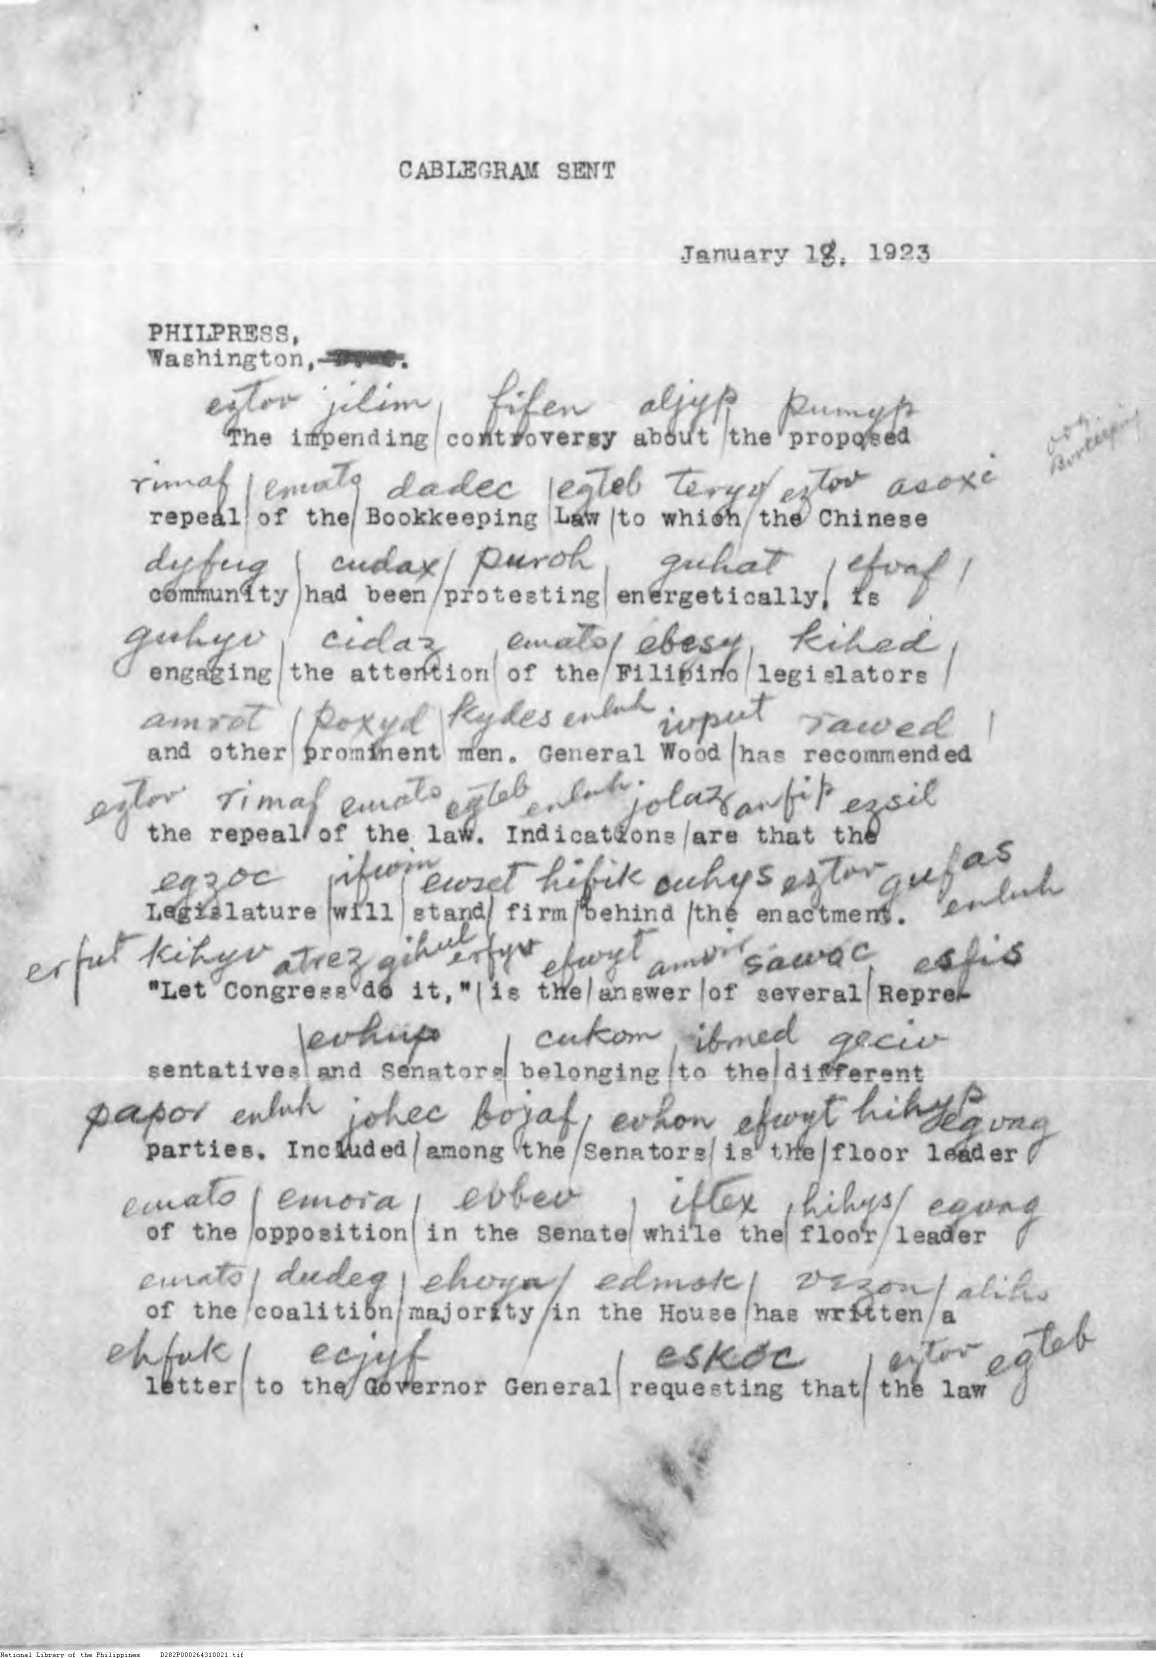 CABLEGRAM SENT
January 18, 1923
PHILPRESS,
Washington,
eztov jilim fifen aljyp pumyp
The impending controversy about the proposed
rimaf emato dadec egteb teryv eztov asoxi
repeal of the Bookkeeping Law to which the Chinese
dyfug cudax puroh guhat efvaf
community had been protesting energetically, is
guhyv cidaz emato ebesy kihed
engaging the attention of the Filipino legislators
amrot poxyd kydes enluh ivput rawed
and other prominent men. General Wood has recommended
eztov rimaf emato egteb enluh jolaz anfip ezsil
the repeal of the law. Indications are that the
egzoc ifwim ewset hifik ouhys eztov gufas
Legislature will stand firm behind the enactment. enluh
erfut kihyv atrez gihul erfyv efwyt amvir sawoc esfis
"Let Congress do it," is the answer of several Repre-
evhup cukom ibmed geciv
sentatives and Senators belonging to the different
papor enluh johec bojaf evhon efwyt hihyp egvag
parties. Included among the Senators is the floor leader
emato emora evbev iftex hihys egvag
of the opposition in the Senate while the floor leader
emato dudeg ehvya edmok vezon aliho
of the coalition majority in the House has written a
ehfuk ecjyf eskoc eztov egteb
letter to the Governor General requesting that the law
National Library of the Philippines D282P000264310021.tif